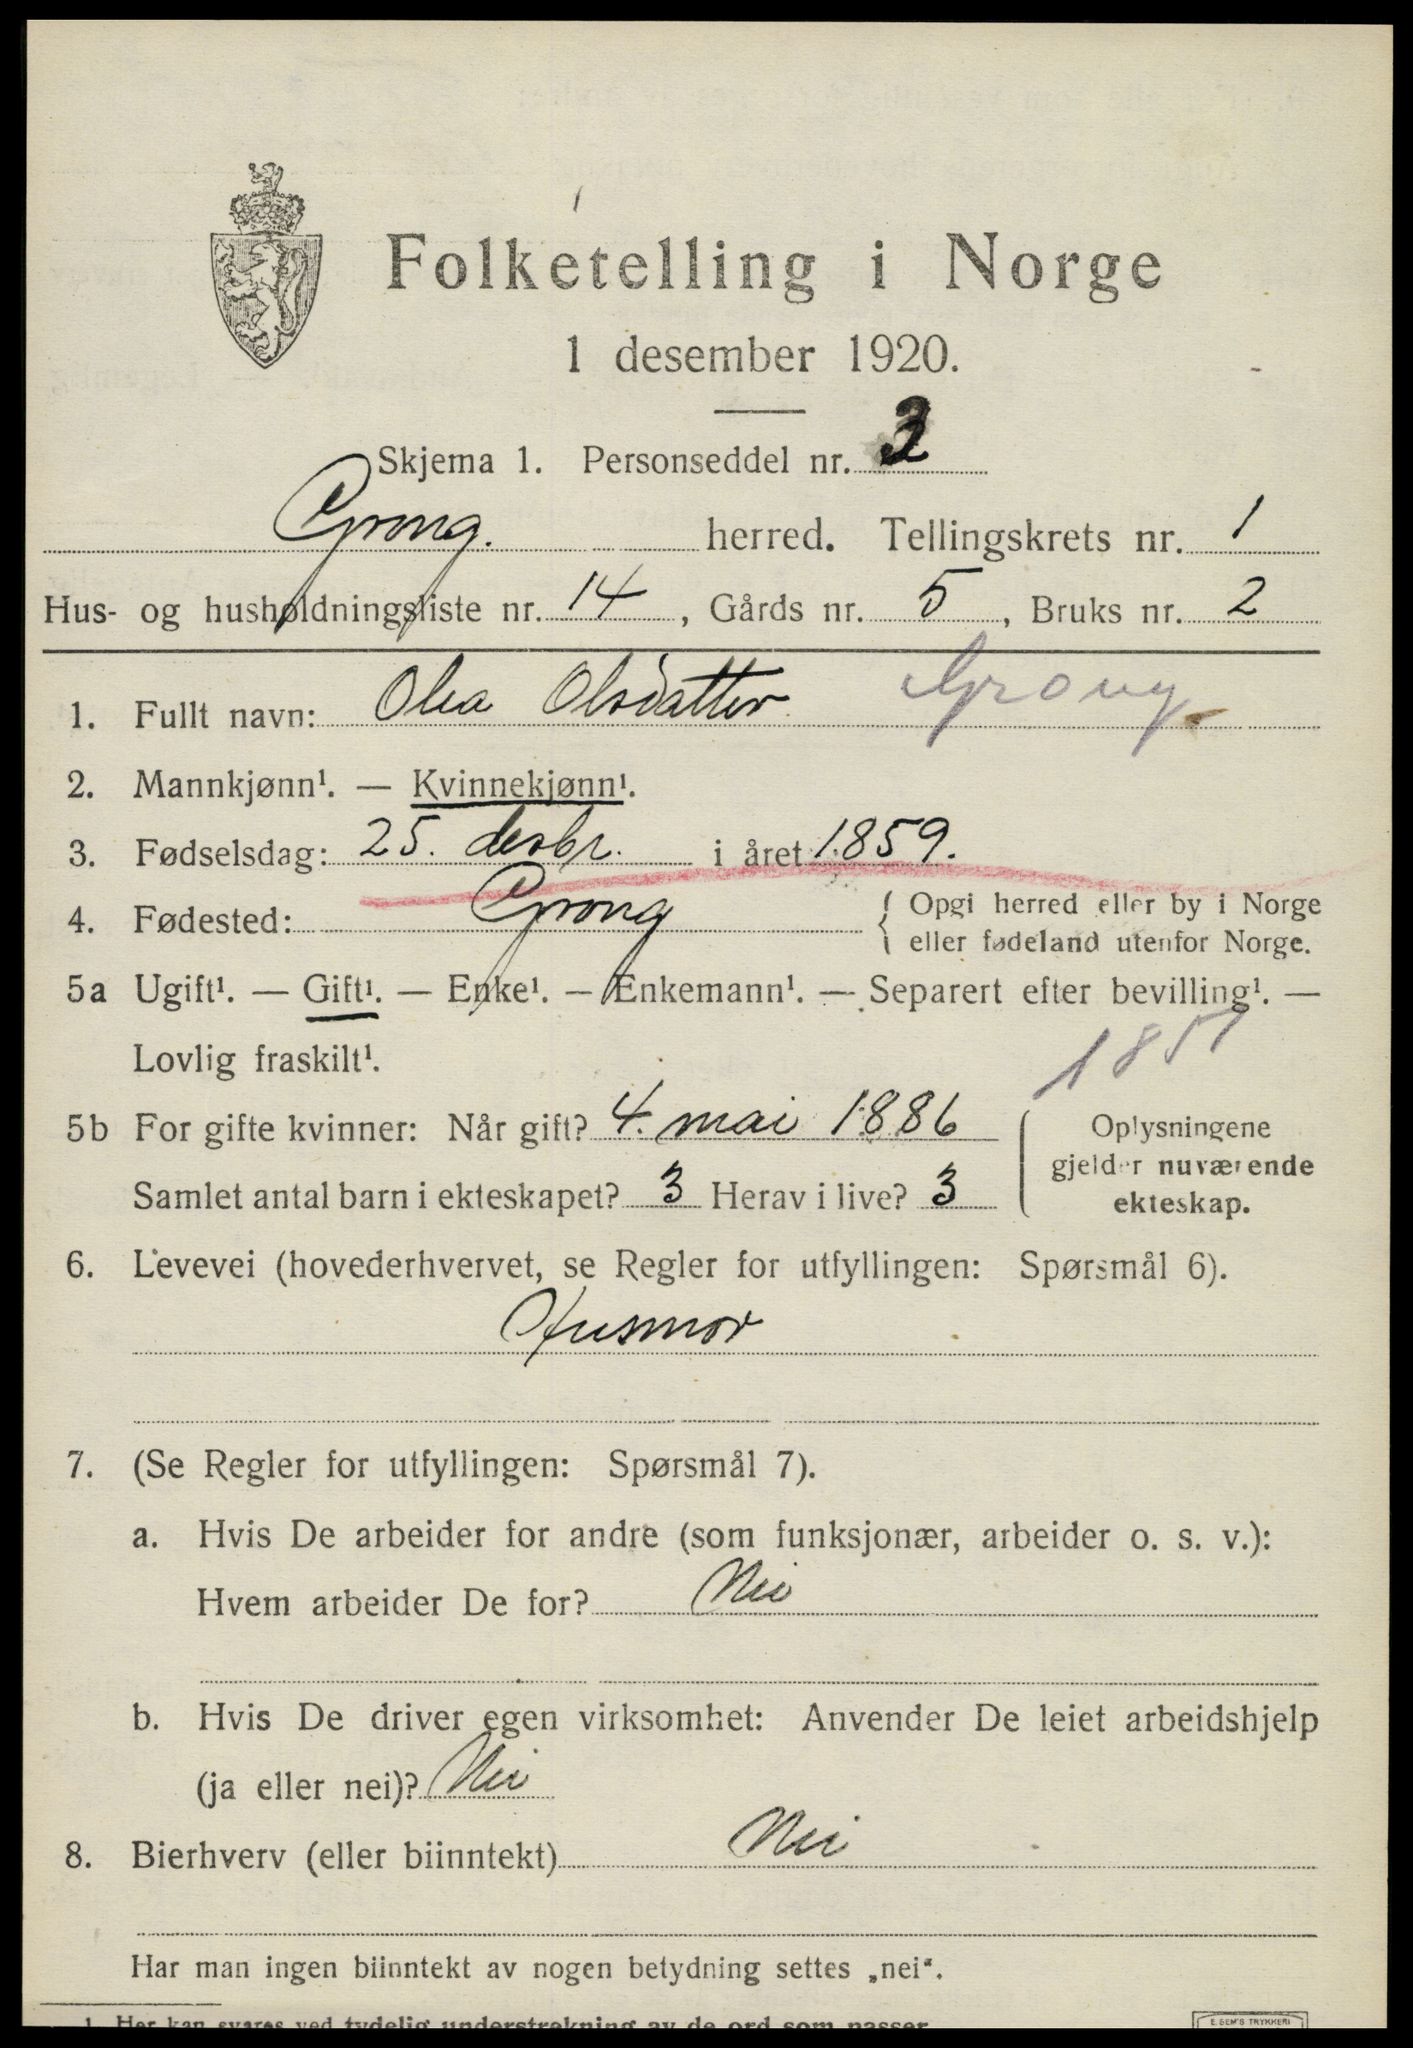 Folketelling i Norge
1 desember 1920.
Skjema 1. Personseddel nr. 2
Grong. herred. Tellingskrets nr. 1
Hus- og husholdningsliste nr. 14, Gårds nr. 5, Bruks nr. 2
1. Fullt navn: Olea Olsdatter Grong
2. Mannkjønn¹. — Kvinnekjønn¹.
3. Fødselsdag: 25. desbr. i året 1859.
4. Fødested: Grong { Opgi herred eller by i Norge
eller fødeland utenfor Norge.
5a Ugift¹. — Gift¹. — Enke¹. — Enkemann¹. — Separert efter bevilling¹. —
Lovlig fraskilt¹.
1851
5b For gifte kvinner: Når gift? 4. mai 1886 Oplysningene
gjelder nuværende
Samlet antal barn i ekteskapet? 3 Herav i live? 3 ekteskap.
6. Levevei (hovederhvervet, se Regler for utfyllingen: Spørsmål 6).
Husmor
7. (Se Regler for utfyllingen: Spørsmål 7).
a. Hvis De arbeider for andre (som funksjonær, arbeider o. s. v.):
Hvem arbeider De for? Nei
b. Hvis De driver egen virksomhet: Anvender De leiet arbeidshjelp
(ja eller nei)? Nei
8. Bierhverv (eller biinntekt) Nei
Har man ingen biinntekt av nogen betydning settes „nei“.
1 Her kan svares ved tydelig understrekning av de ord som passer.
E. SEM'S TRYKKERI